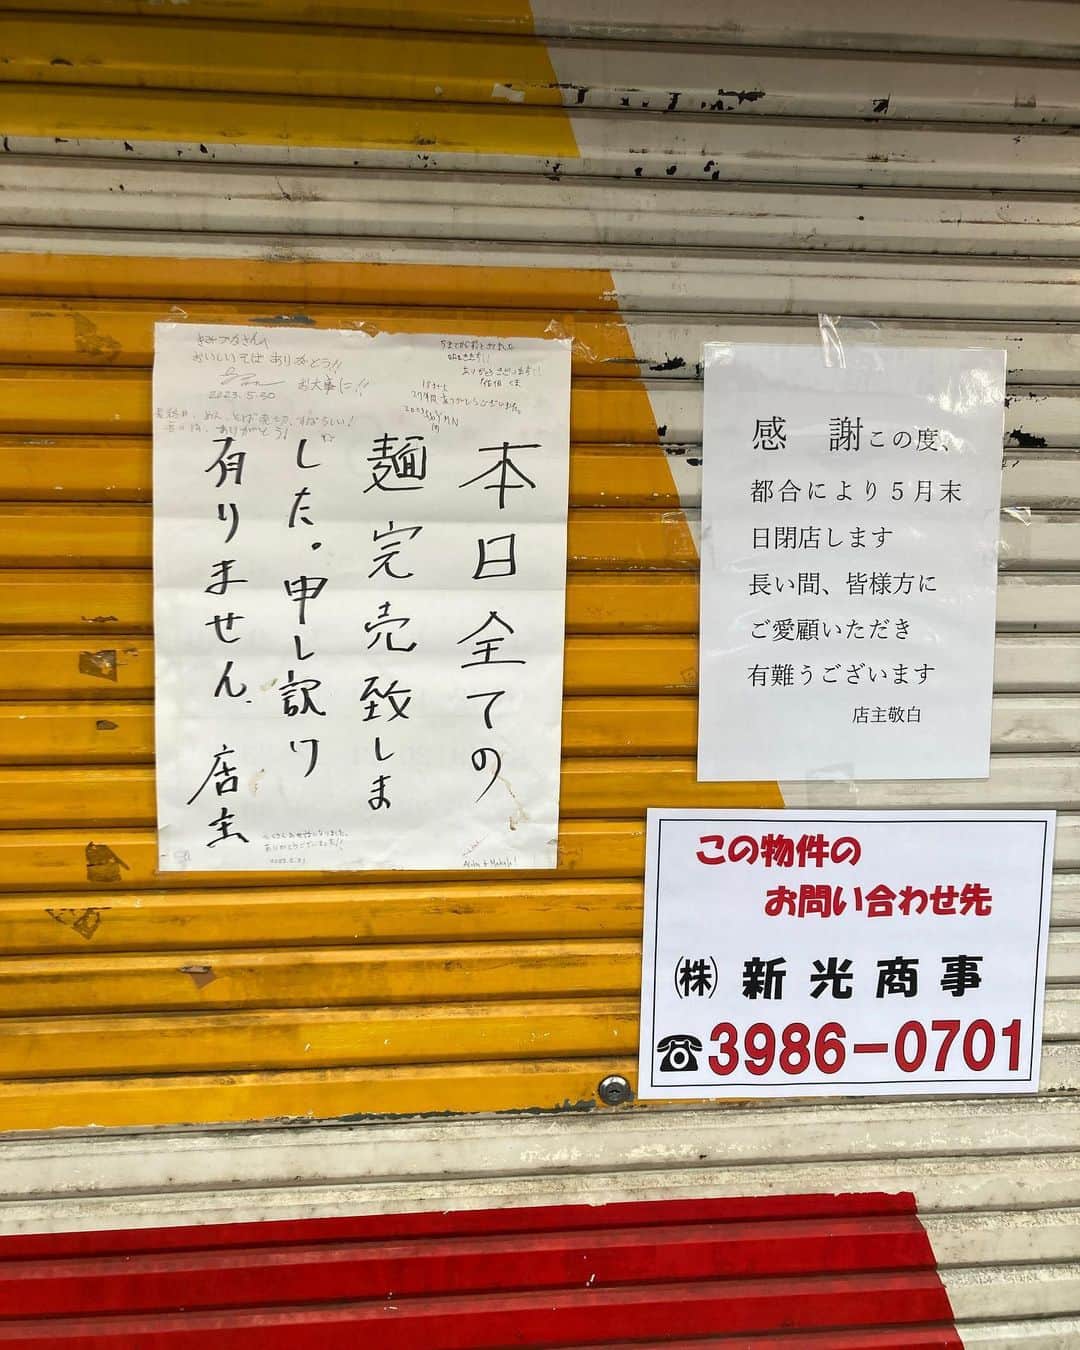 おいしいそば ありがとう!!
お大事に!!
2023.5.30
ありがとうございます!!
本日全ての
麺完売致しま
した。申し訳け
有りません。店主
たくさんお世話になりました。
ありがとうございました!!
感 謝 この度、
都合により５月末
日閉店します
長い間、皆様方に
ご愛顧いただき
有難うございます
店主敬白
この物件の
お問い合わせ先
㈱ 新光商事
☎3986-0701